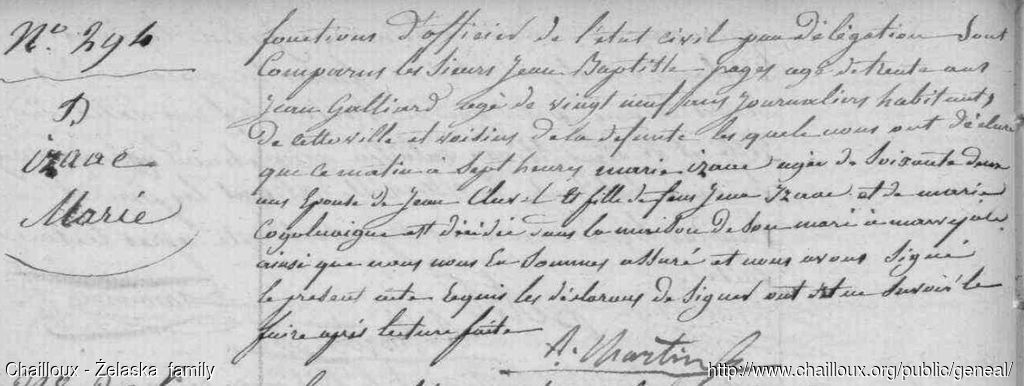 N.º 294
D
izaac
Marie
fonctions d'officier de l'état civil par délégation Sont
Comparus les Sieurs Jean Baptiste pages agé de trente ans
Jean Galliard agé de vingt neuf ans Journaliers habitants
de cette ville et voisins de la defunte les quels nous ont déclaré
que ce matin à Sept heures marie izaac agée de Soixante deux
ans Epouse de Jean Et fille de feus Jean Izaac et de marie
est décédée dans la maison de Son mari à marvejols
ainsi que nous nous En Sommes assuré et nous avons Signé
le présent acte Requis les déclarans de Signer ont dit ne Savoir le
faire après lecture faite
A. Martin
Chailloux - Żelaska family
http://www.chailloux.org/public/geneal/